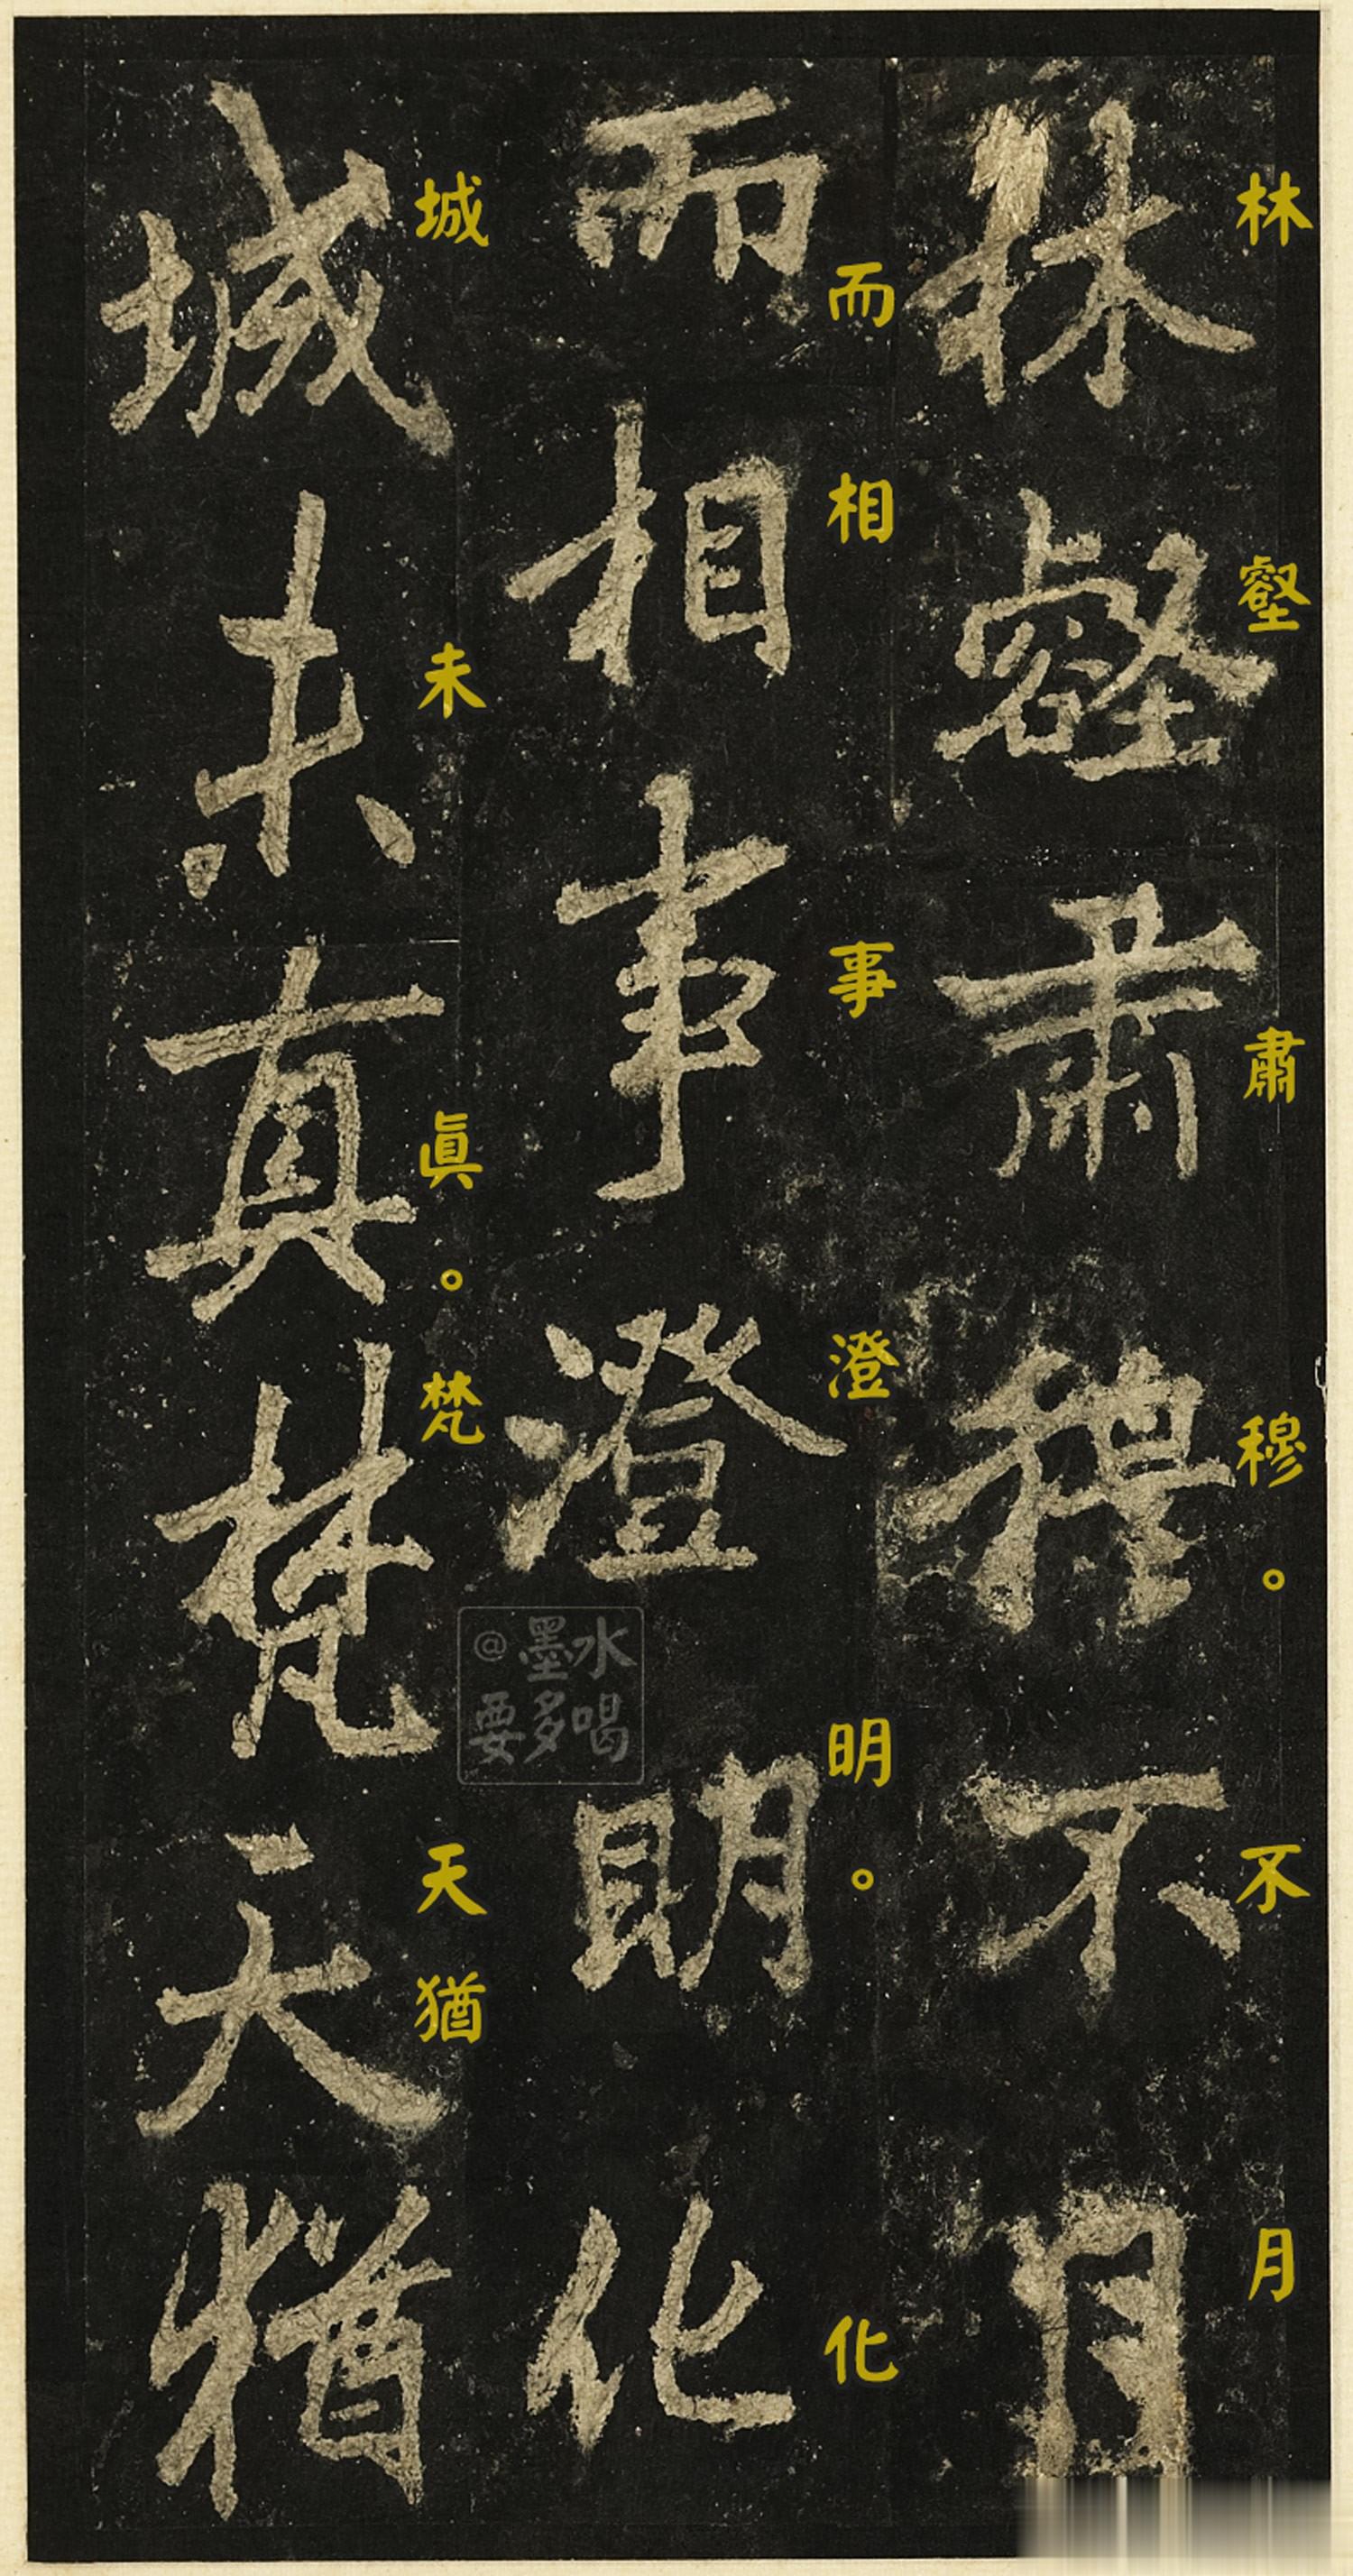 林壑肅穆。不月
林壑肅穆不月
而相事澄明。化
而相事澄明化
城未眞。梵天猶
城未真梵天猶
@墨水
要多喝